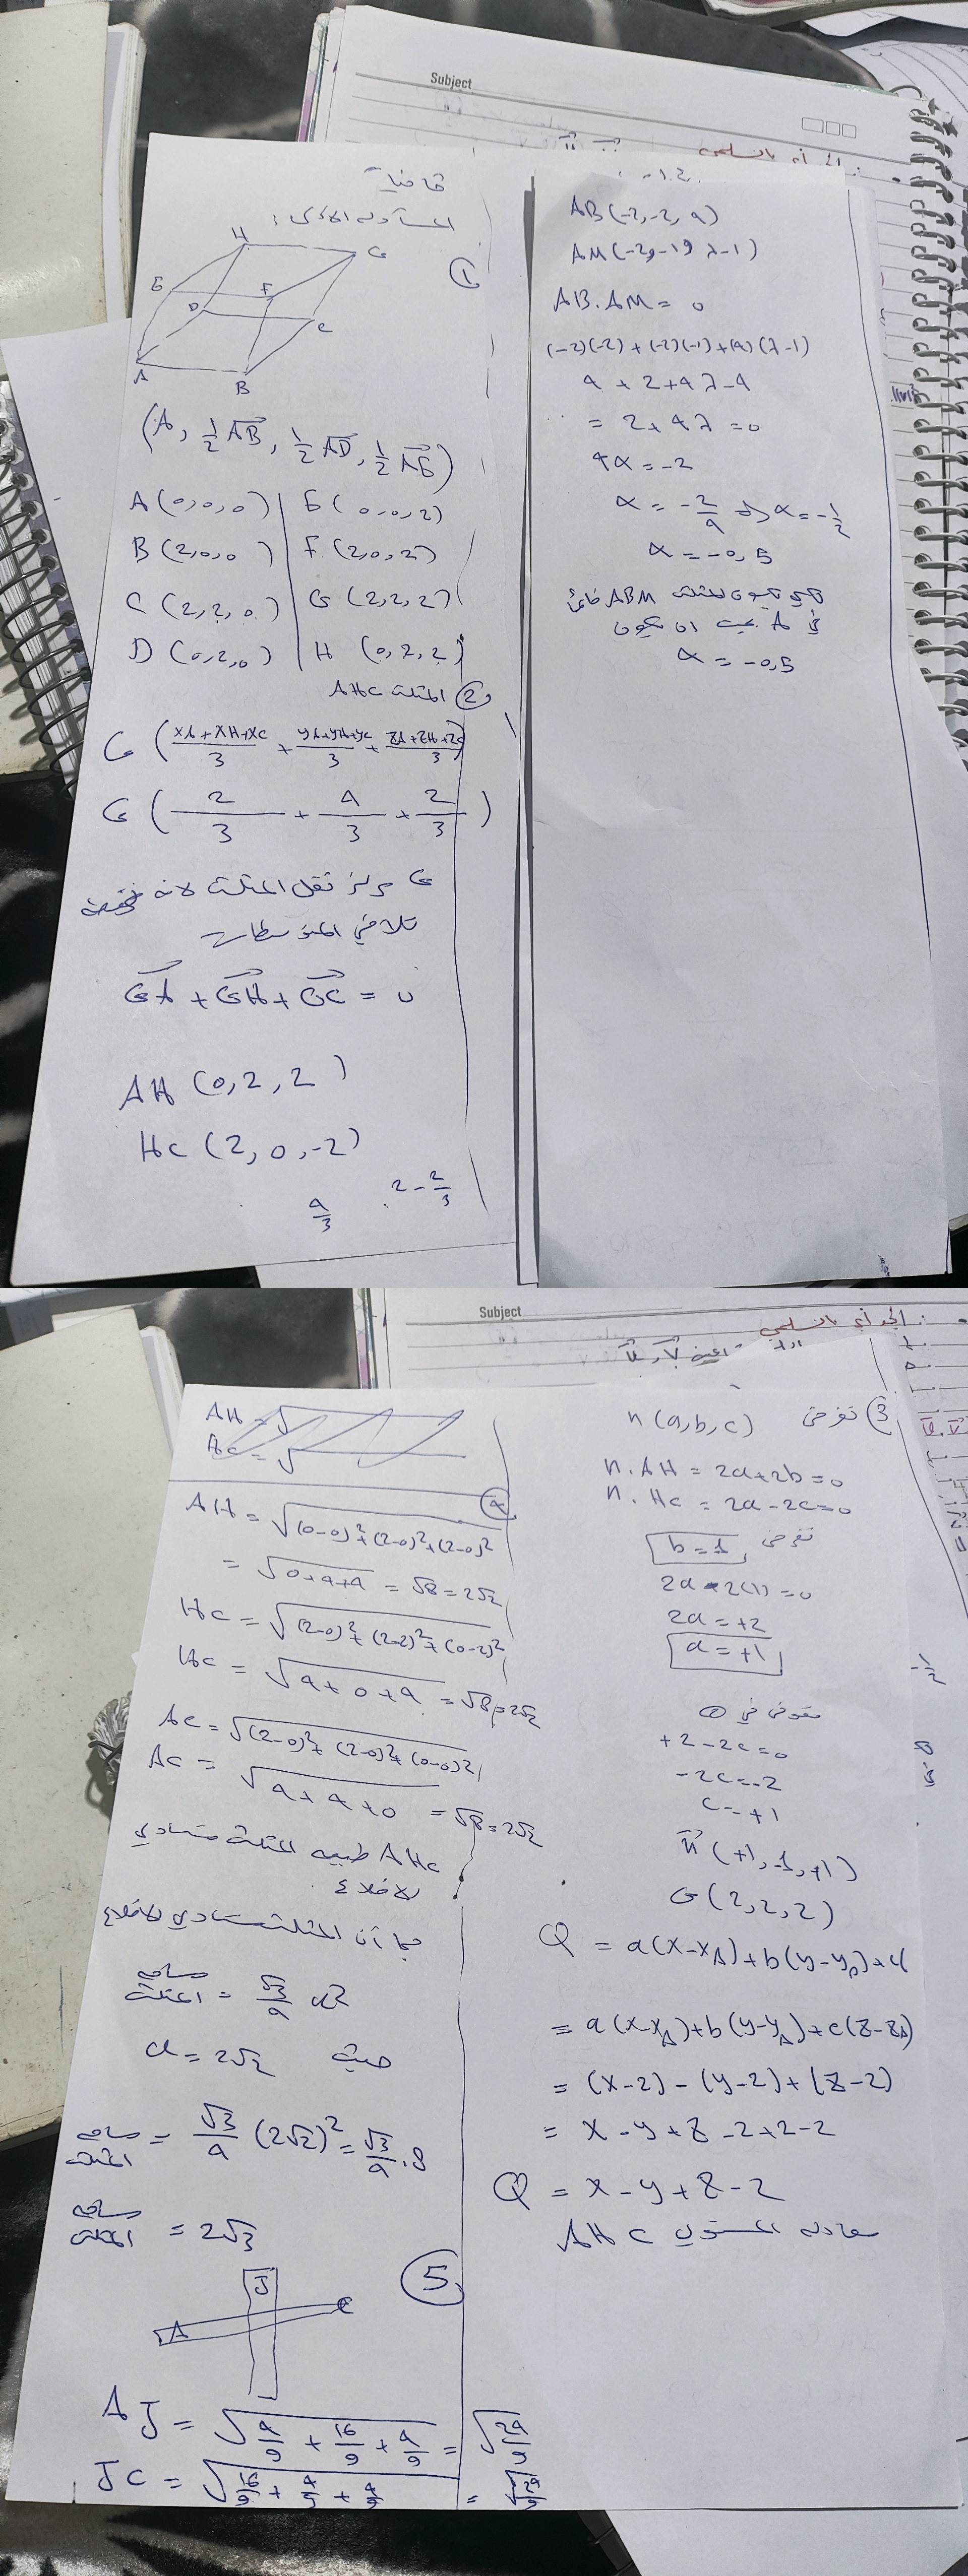 Subject
رياضيات
المسألة الأولى:
①
H
G
E
F
D
C
A
B
(A, 1/2 AB, 1/2 AD, 1/2 AE)
A (0,0,0) | E (0,0,2)
B (2,0,0) | F (2,0,2)
C (2,2,0) | G (2,2,2)
D (0,2,0) | H (0,2,2)
② المثلث AHC
G ( (xA+xH+xC)/3 + (yA+yH+yC)/3 + (zA+zH+zC)/3 )
G ( 2/3 + 4/3 + 2/3 )
G مركز ثقل المثلث لانه نقطة
تلاقي المتوسطات
GA + GH + GC = 0
AH (0,2,2)
HC (2,0,-2)
4/3
2 - 2/3
AB (-2,-2,4)
AM (-2, -1, λ-1)
AB.AM = 0
(-2)(-2) + (-2)(-1) + (4)(λ-1)
4 + 2 + 4λ - 4
= 2 + 4λ = 0
4α = -2
α = -2/4 ⇒ α = -1/2
α = -0,5
لكي يكون المثلث ABM قائم
في A يجب ان يكون
α = -0,5
Subject
AH = √
AC = √
④
AH = √(0-0)²+(2-0)²+(2-0)²
= √0+4+4 = √8 = 2√2
HC = √(2-0)²+(2-2)²+(0-2)²
HC = √4+0+4 = √8 = 2√2
AC = √(2-0)²+(2-0)²+(0-0)²
AC = √4+4+0 = √8 = 2√2
AHC طبيعة المثلث متساوي
الاضلاع
بما أن المثلث متساوي الاضلاع
مساحة المثلث = √3/4 a²
a = 2√2 حيث
مساحة المثلث = √3/4 (2√2)² = √3/4 . 8
مساحة المثلث = 2√3
⑤
J
A
C
AJ = √4/9 + 16/9 + 4/9 = √24/9
JC = √16/9 + 4/9 + 4/9 = √24/9
③ نفرض n (a,b,c)
n.AH = 2a+2b=0
n.HC = 2a-2c=0
نفرض b=1
2a-2(1)=0
2a=+2
a=+1
نعوض في ②
+2-2c=0
-2c=-2
c=+1
n (+1,-1,+1)
G (2,2,2)
Q = a(x-xA)+b(y-yA)+c(
= a(x-xA)+b(y-yA)+c(z-zA)
= (x-2) - (y-2) + (z-2)
= x-y+z-2+2-2
Q = x-y+z-2
معادلة المستوي AHC